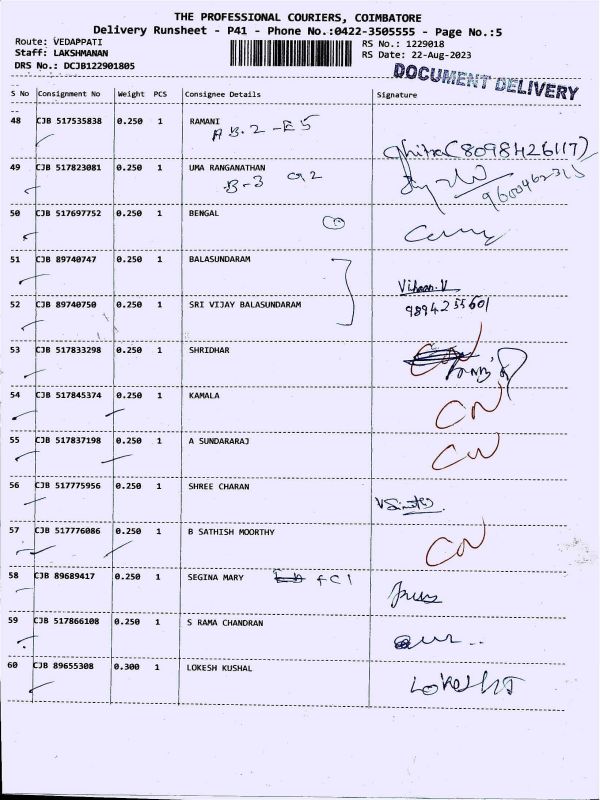 THE PROFESSIONAL COURIERS, COIMBATORE
Delivery Runsheet - P41 - Phone No.:0422-3505555 - Page No.:5
Route: VEDAPPATI RS No.: 1229018
Staff: LAKSHMANAN RS Date: 22-Aug-2023
DRS No.: DCJB122901805
DOCUMENT DELIVERY
S No Consignment No Weight PCS Consignee Details Signature
48 CJB 517535838 0.250 1 RAMANI
A B.2 - E5
(8098426117)
49 CJB 517823081 0.250 1 UMA RANGANATHAN
B-3 G2
50 CJB 517697752 0.250 1 BENGAL
51 CJB 89740747 0.250 1 BALASUNDARAM
Vihaan.V
52 CJB 89740750 0.250 1 SRI VIJAY BALASUNDARAM
9894255601
53 CJB 517833298 0.250 1 SHRIDHAR
54 CJB 517845374 0.250 1 KAMALA
CN
55 CJB 517837198 0.250 1 A SUNDARARAJ
CN
56 CJB 517775956 0.250 1 SHREE CHARAN
57 CJB 517776086 0.250 1 B SATHISH MOORTHY
CN
58 CJB 89689417 0.250 1 SEGINA MARY
FC1
59 CJB 517866108 0.250 1 S RAMA CHANDRAN
60 CJB 89655308 0.300 1 LOKESH KUSHAL